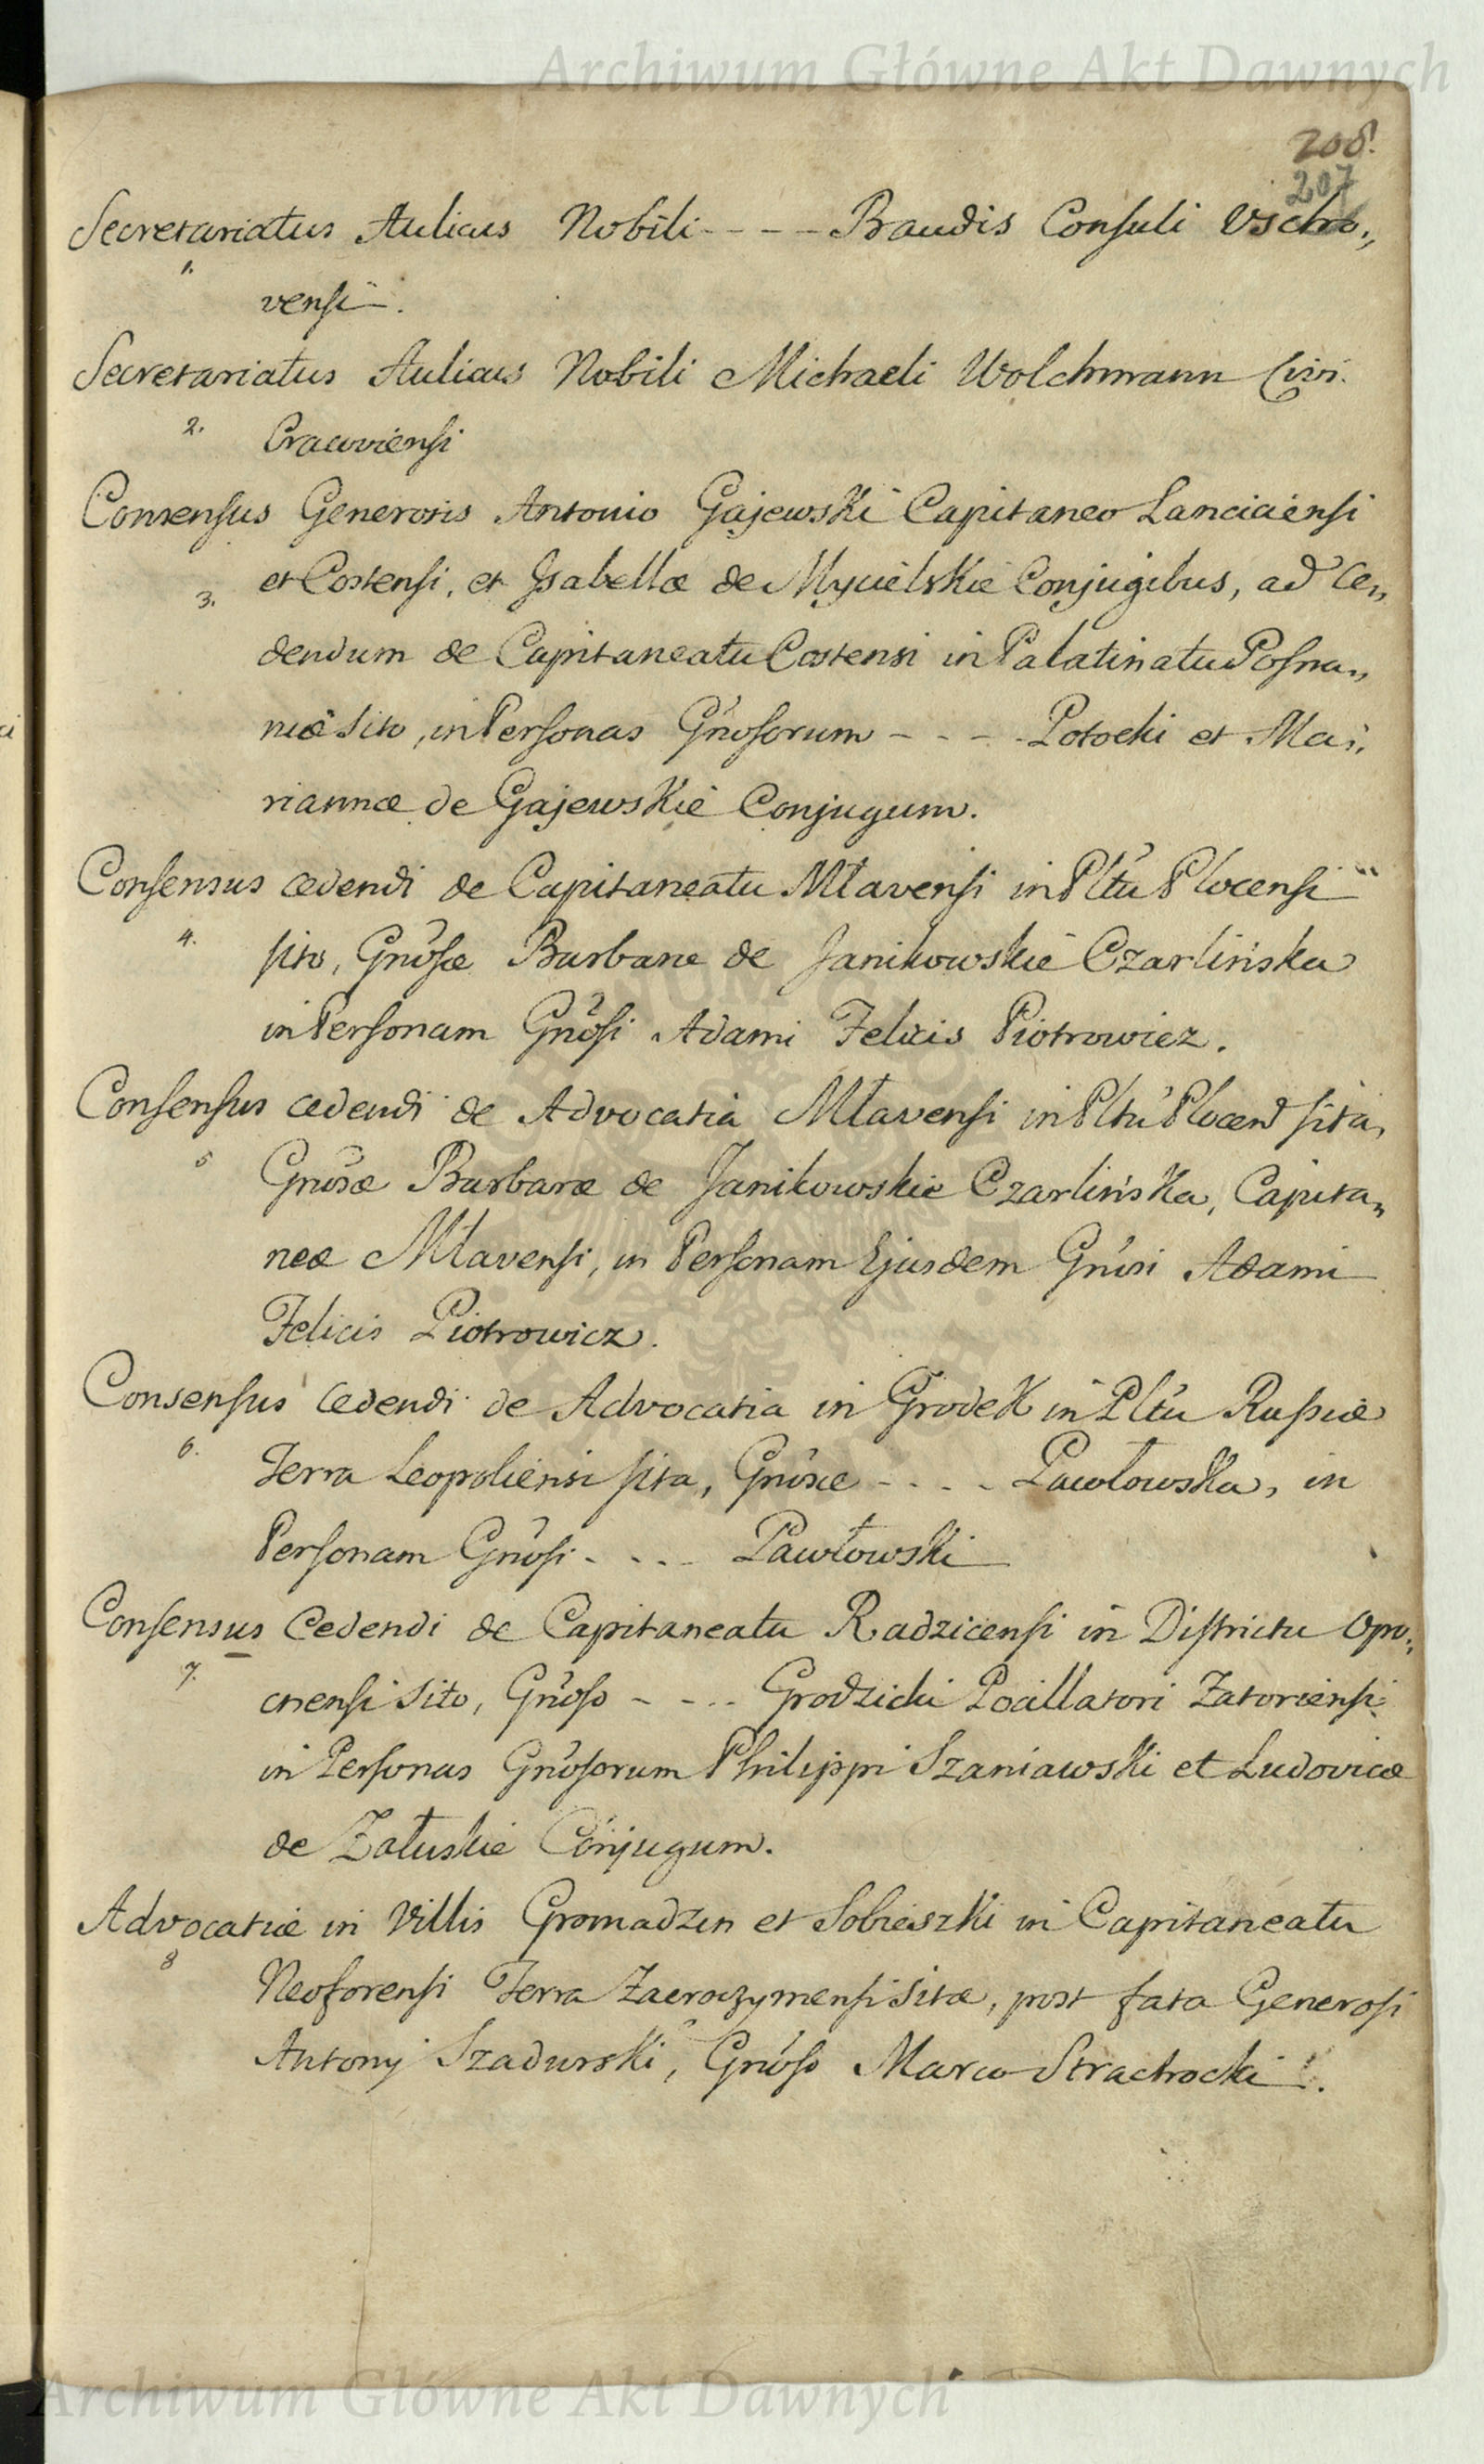 Archiwum Główne Akt Dawnych
208.
207
Secretariatus Aulicus Nobili - - - - Brandis Consuli Vscho„
1.
vensi.
Secretariatus Aulicus Nobili Michaeli Wolchmann Civi.
2. Cracoviensi
Consensus Generosis Antonio Gajewski Capitaneo Lanciciensi
3. et Costensi, et Isabellæ de Mycielskie Conjugibus, ad Ce„
dendum de Capitaneatu Costensi in Palatinatu Posna„
niæ sito, in Personas Gnosorum - - - - Potocki et Ma„
riannæ de Gajewskie Conjugum.
Consensus cedendi de Capitaneatu Mławensi in Pltu Plocensi
4. sito, Gnosæ Barbaræ de Janikowskie Czarlińska
in Personam Gnosi Adami Felicis Piotrowicz.
Consensus cedendi de Advocatia Mławensi in Pltu Plocen sita,
5 Gnosæ Barbaræ de Janikowskie Czarlińska, Capita„
neæ Mlavensi, in Personam Ejusdem Gnosi Adami
Felicis Piotrowicz.
Consensus Cedendi de Advocatia in Grodek in Pltu Russiæ
6. Terra Leopoliensi sita, Gnosæ - - - - Pawłowska, in
Personam Gnosi - - - - Pawłowski
Consensus Cedendi de Capitaneatu Radzicensi in Districtu Opo„
7. cnensi sito, Gnoso - - - - Grodzicki Pocillatori Zatoriensi
in Personas Gnosorum Philippi Szaniawski et Ludovicæ
de Załuskie Conjugum.
Advocatiæ in Villis Gromadzen et Sobieszki in Capitaneatu
8 Neoforensi Terra Zacroczymensi sitæ, post fata Generosi
Antony Szadurski, Gnoso Marco Strachocki.
Archiwum Główne Akt Dawnych